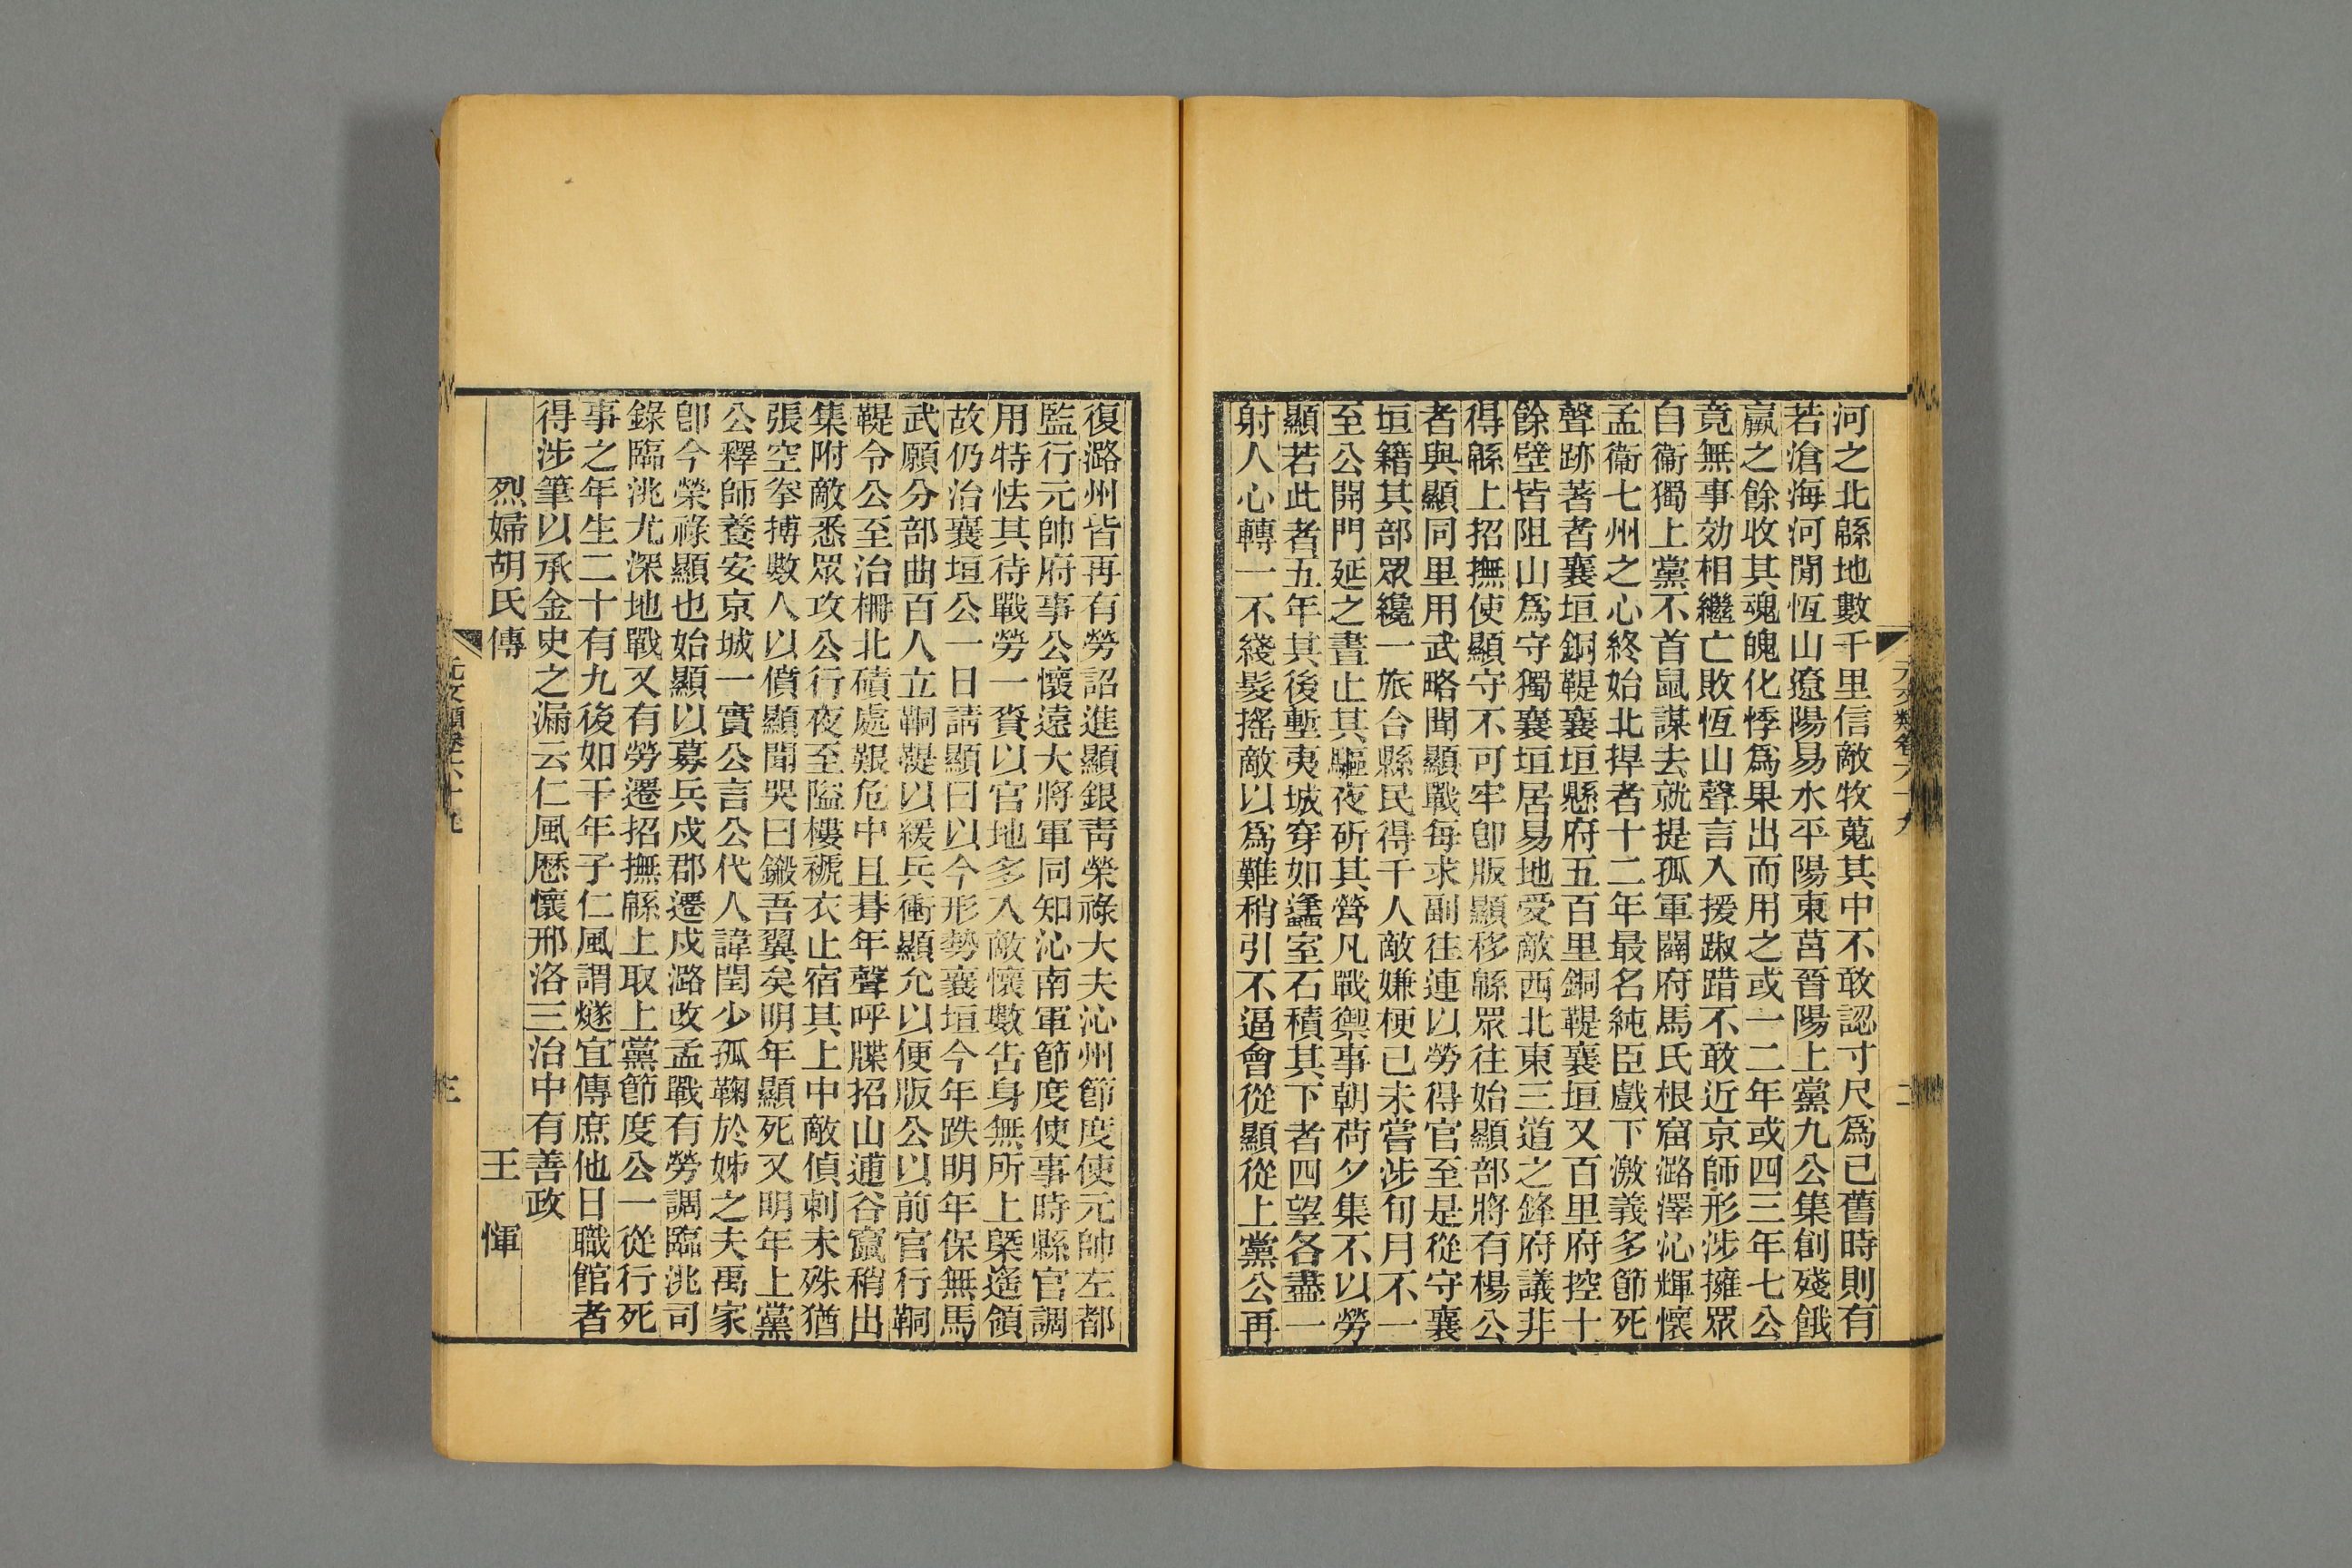 河之北緜地數千里信敵牧蒐其中不敢認寸尺爲己舊時則有
若滄海河閒恆山遼陽易水平陽東莒晉陽上黨九公集創殘餓
羸之餘收其魂魄化悸爲果出而用之或一二年或四三年七公
竟無事効相繼亡敗恆山聲言入援踧踖不敢近京師形涉擁眾
自衞獨上黨不首鼠謀去就提孤軍關府馬氏根窟潞澤沁輝懷
孟衞七州之心終始北捍者十二年最名純臣戲下激義多節死
聲跡著者襄垣銅鞮襄垣懸府五百里銅鞮襄垣又百里府控十
餘壁皆阻山爲守獨襄垣居易地受敵西北東三道之鋒府議非
得緜上招撫使顯守不可牢卽版顯移緜眾往始顯部將有楊公
者與顯同里用武略聞顯戰每求副往連以勞得官至是從守襄
垣籍其部眾纔一旅合縣民得千人敵嫌梗己未嘗涉旬月不一
至公開門延之晝止其驅夜斫其營凡戰禦事朝荷夕集不以勞
顯若此者五年其後塹夷城穿如蠭室石積其下者四望各盡一
射人心轉一不綫髮搖敵以爲難稍引不逼會從顯從上黨公再
復潞州皆再有勞詔進顯銀靑榮祿大夫沁州節度使元帥左都
監行元帥府事公懷遠大將軍同知沁南軍節度使事時縣官調
用特怯其待戰勞一賚以官地多入敵懷數告身無所上槩遙領
故仍治襄垣公一日請顯曰以今形勢襄垣今年跌明年保無馬
武願分部曲百人立銅鞮以緩兵衝顯允以便版公以前官行銅
鞮令公至治柵北磧處艱危中且朞年聲呼牒招山逋谷竄稍出
集附敵悉眾攻公行夜至隘樓褫衣止宿其上中敵偵刺未殊猶
張空拳搏數人以僨顯聞哭曰鎩吾翼矣明年顯死又明年上黨
公釋師養安京城一實公言公代人諱閏少孤鞠於姊之夫禹家
卽今榮祿顯也始顯以募兵戍郡遷戍潞改孟戰有勞調臨洮司
錄臨洮尤深地戰又有勞遷招撫緜上取上黨節度公一從行死
事之年生二十有九後如干年子仁風謂燧宜傳庶他日職館者
得涉筆以承金史之漏云仁風歷懷邢洛三治中有善政
烈婦胡氏傳　王惲